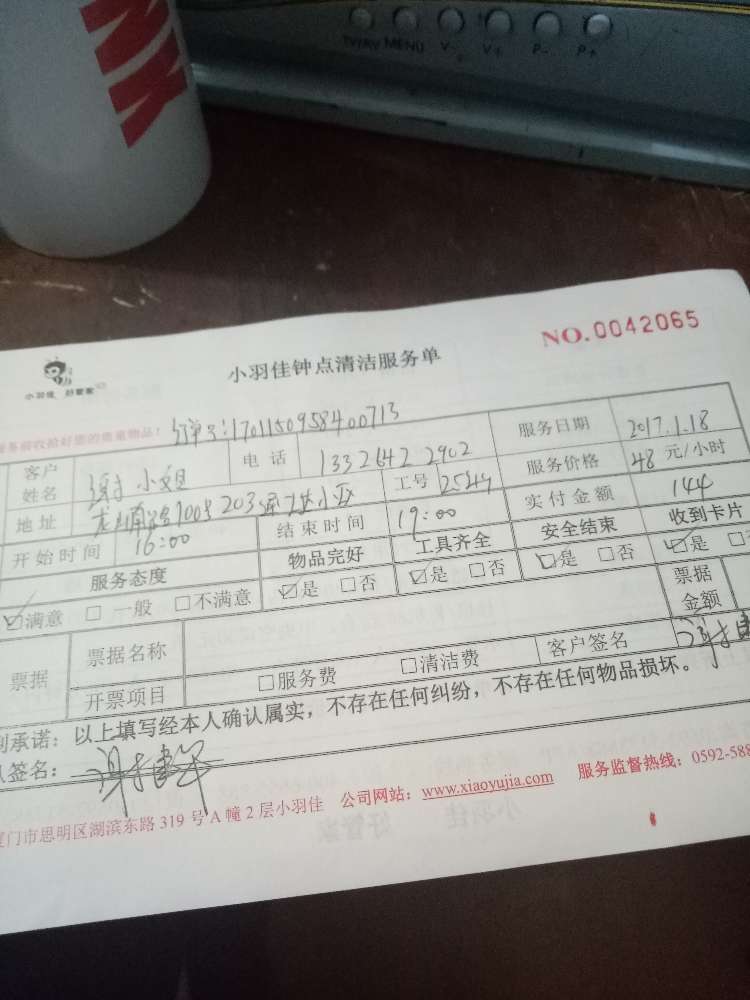 NK
TV/AV MENU V- V+ P- P+
NO.0042065
小羽佳 好管家
小羽佳钟点清洁服务单
务前收拾好您的贵重物品! 订单号:1701150958400713
客户姓名 谢小姐 电话 13326422902 服务日期 2017.1.18
地址 203 工号 2544 服务价格 48 元/小时
开始时间 16:00 结束时间 19:00 实付金额 144
服务态度 物品完好 工具齐全 安全结束 收到卡片
☑满意 □一般 □不满意 ☑是 □否 ☑是 □否 ☑是 □否 ☑是
票据 票据名称 票据金额
开票项目 □服务费 □清洁费 客户签名
承诺:以上填写经本人确认属实,不存在任何纠纷,不存在任何物品损坏。
签名:
门市思明区湖滨东路 319 号 A 幢 2 层小羽佳 公司网站:www.xiaoyujia.com 服务监督热线:0592-588